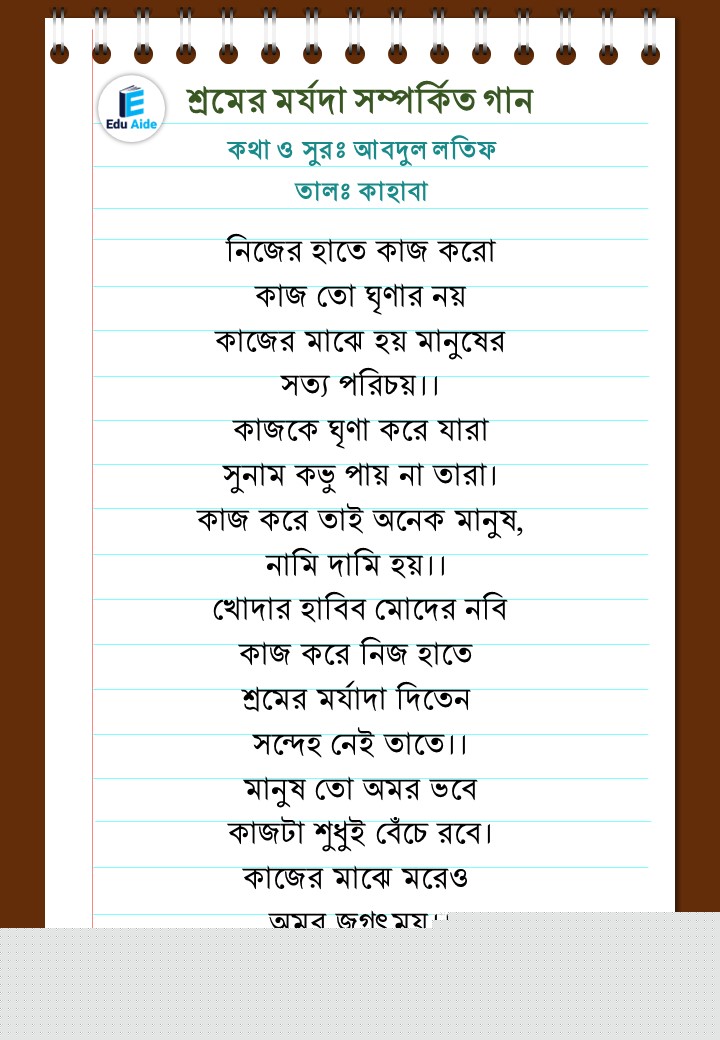 Edu Aide
শ্রমের মর্যদা সম্পর্কিত গান
কথা ও সুরঃ আবদুল লতিফ
তালঃ কাহাবা
নিজের হাতে কাজ করো
কাজ তো ঘৃণার নয়
কাজের মাঝে হয় মানুষের
সত্য পরিচয়।।
কাজকে ঘৃণা করে যারা
সুনাম কভু পায় না তারা।
কাজ করে তাই অনেক মানুষ,
নামি দামি হয়।।
খোদার হাবিব মোদের নবি
কাজ করে নিজ হাতে
শ্রমের মর্যাদা দিতেন
সন্দেহ নেই তাতে।।
মানুষ তো অমর ভবে
কাজটা শুধুই বেঁচে রবে।
কাজের মাঝে মরেও
অমর জগৎ ময়।।